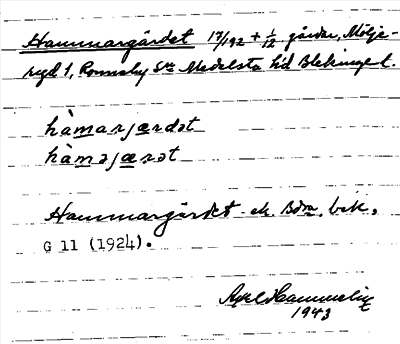 Hammargärdet 17/192 + 1/12 gårdar, Mölje-
ryd 1, Ronneby Sn Medelsta hd Blekinge l.
hàmarjærdət
hàməjæṛət
Hammargärdet ek. Bdm. bek,
G 11 (1924).
Axel Hammelin
1943